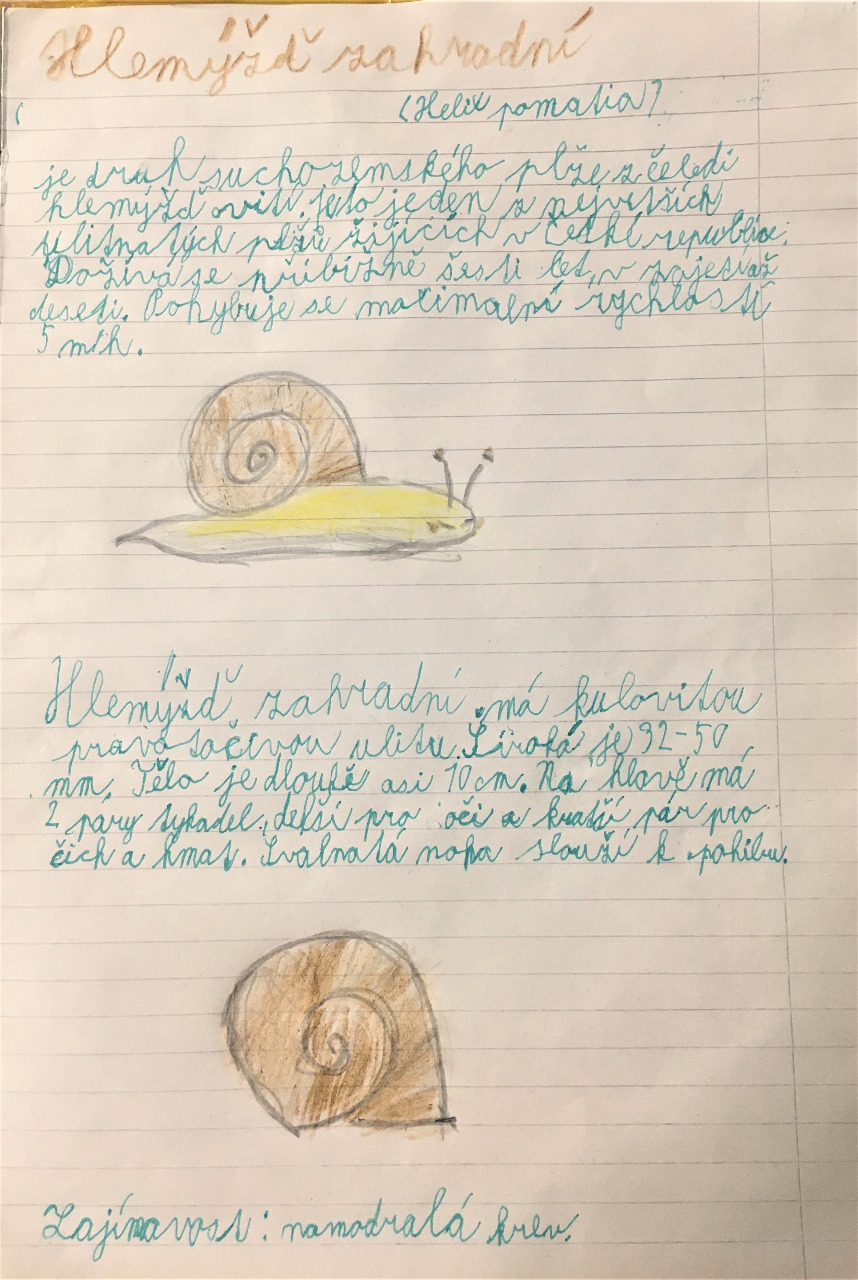 Hlemýžď zahradní
(Helix pomatia)
je druh suchozemského plže z čeledi
hlemýžďovití. je to jeden z největších
ulitnatých plžů žijících v České republice.
Dožívá se přibížně šesti let, v zajetí až
deseti. Pohybuje se maximalní rychlostí
5 m/h.
Hlemýžď zahradní má kulovitou
pravotočivou ulitu. Široká je 32-50
mm. Tělo je dlouhé asi 10 cm. Na hlavě má
2 páry tykadel, delší pro oči a kratší pár pro
čich a hmat. Svalnatá noha slouží k pohibu.
Zajímavost: namodralá krev.